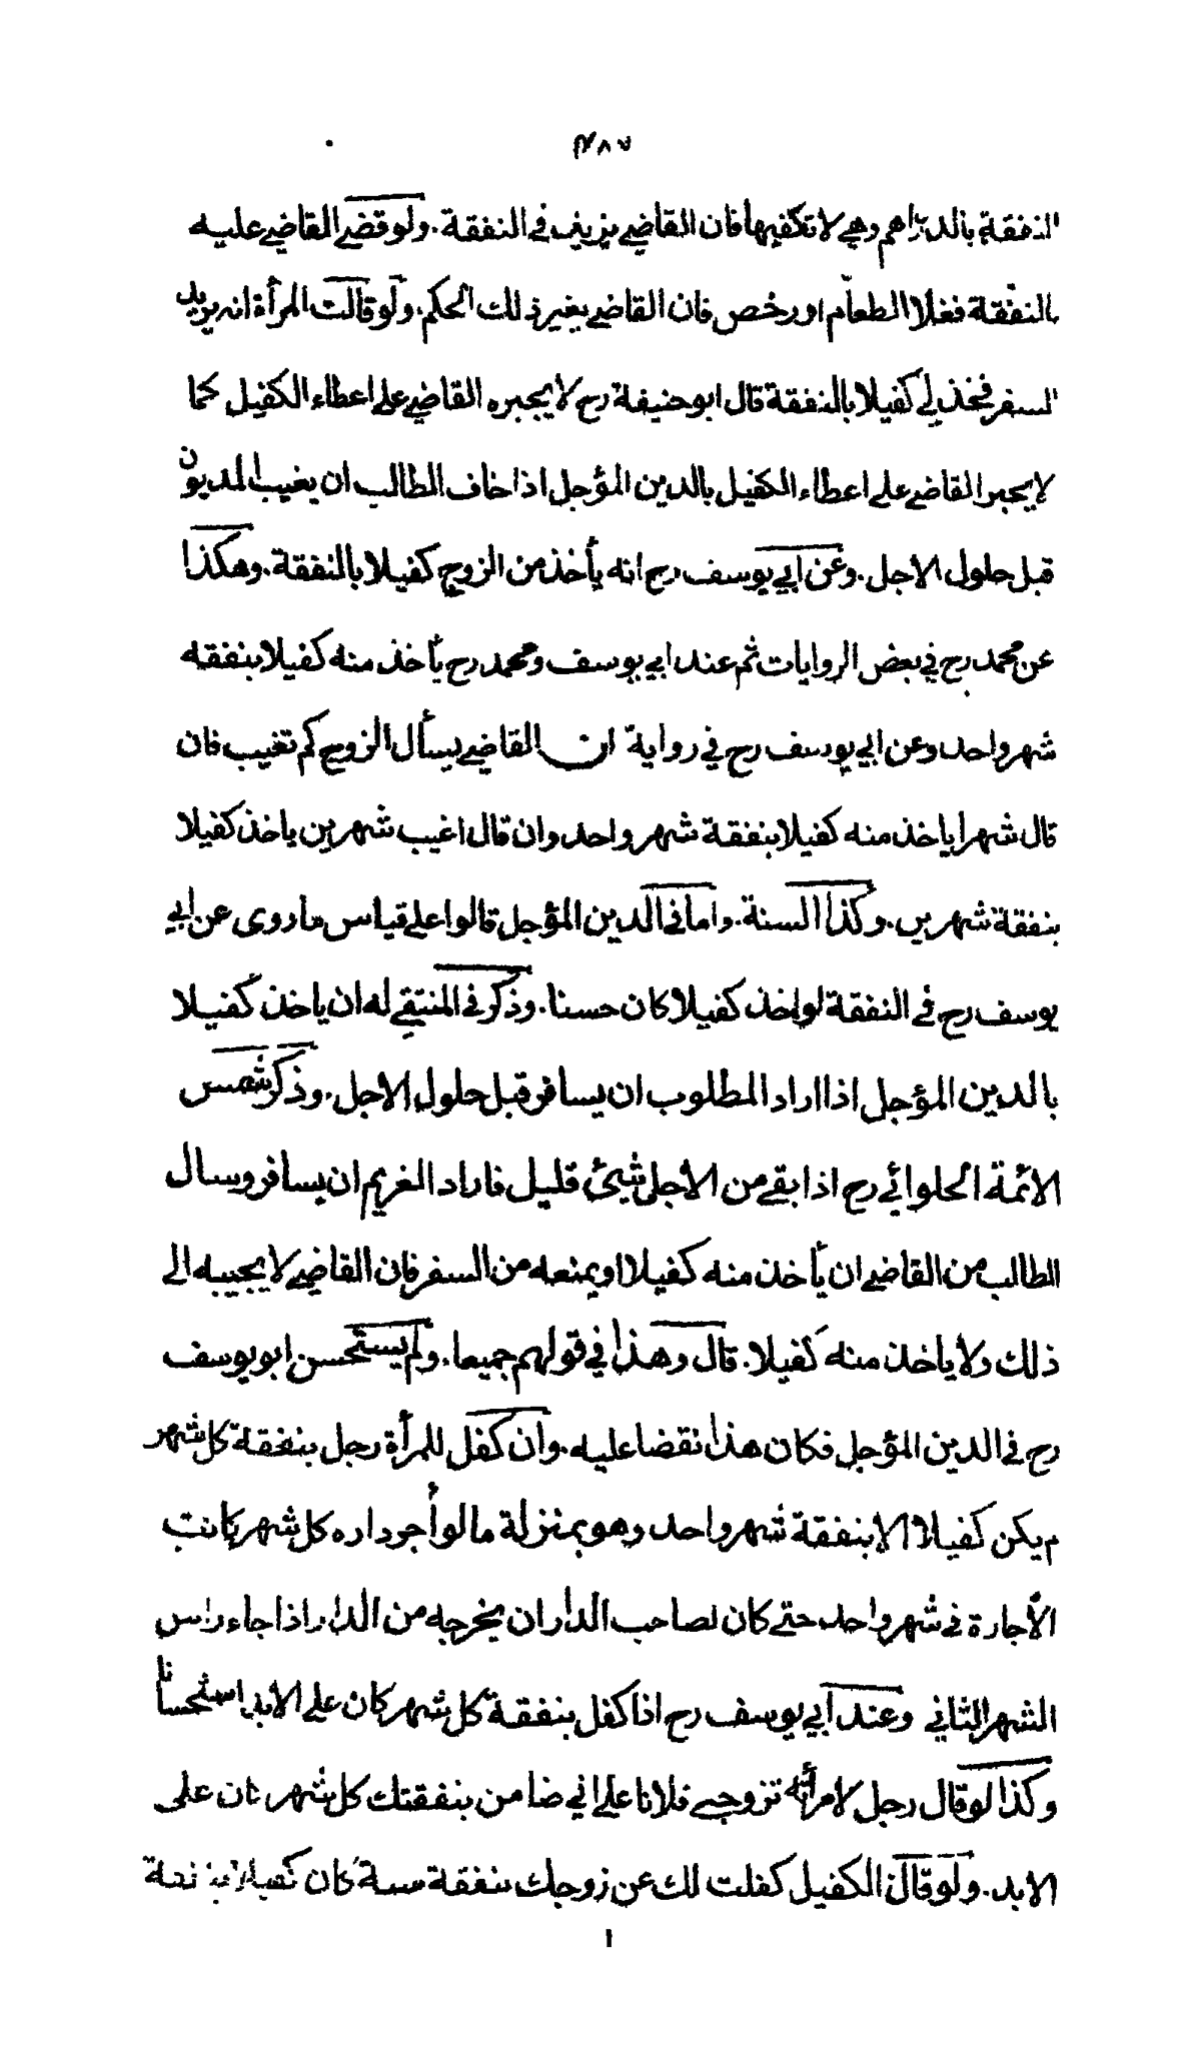 النفقة بالدراهم وهي لا تكفيها فان القاضي يزيد في النفقة. ولو قضى القاضي عليه
بالنفقة فغلا الطعام او رخص فان القاضي يغير ذلك الحكم. ولو قالت المرأة انه يريد
السفر فخذ لي كفيلا بالنفقة قال ابو حنيفة رح لا يجبره القاضي على اعطاء الكفيل كما
لا يجبر القاضي على اعطاء الكفيل بالدين المؤجل اذا خاف الطالب ان يغيب المديون
قبل حلول الاجل. وعن ابي يوسف رح انه يأخذ من الزوج كفيلا بالنفقة. وهكذا
عن محمد رح في بعض الروايات ثم عند ابي يوسف ومحمد رح يأخذ منه كفيلا بنفقه
شهر واحد وعن ابي يوسف رح في رواية ان القاضي يسأل الزوج كم تغيب فان
قال شهرا ياخذ منه كفيلا بنفقة شهر واحد وان قال اغيب شهرين ياخذ كفيلا
بنفقة شهرين. وكذا السنة. واما في الدين المؤجل قالوا على قياس ما روى عن ابي
يوسف رح في النفقة لو اخذ كفيلا كان حسنا. وذكر في المنتقى له ان ياخذ كفيلا
بالدين المؤجل اذا اراد المطلوب ان يسافر قبل حلول الاجل. وذكر شمس
الائمة الحلوائي رح اذا بقي من الأجل شيئ قليل فاراد الغريم ان يسافر وسال
الطالب من القاضي ان يأخذ منه كفيلا او يمنعه من السفر فان القاضي لا يجيبه الى
ذلك ولا ياخذ منه كفيلا. قال وهذا في قولهم جميعا. ولم يستحسن ابو يوسف
رح في الدين المؤجل فكان هذا نقضا عليه. وان كفل للمرأة رجل بنفقة كل شهر
م يكن كفيلا الا بنفقة شهر واحد وهو بمنزلة ما لو أجر داره كل شهر كانت
الأجارة في شهر واحد حتى كان لصاحب الدار ان يخرجه من الدار اذا جاء راس
الشهر الثاني وعند ابي يوسف رح اذا كفل بنفقة كل شهر كان على الابد استحسانا
وكذا لو قال رجل لامرأته تزوجي فلانا على اني ضامن بنفقتك كل شهر فان على
الابد. ولو قال الكفيل كفلت لك عن زوجك بنفقة سنة كان كفيلا بنفقة